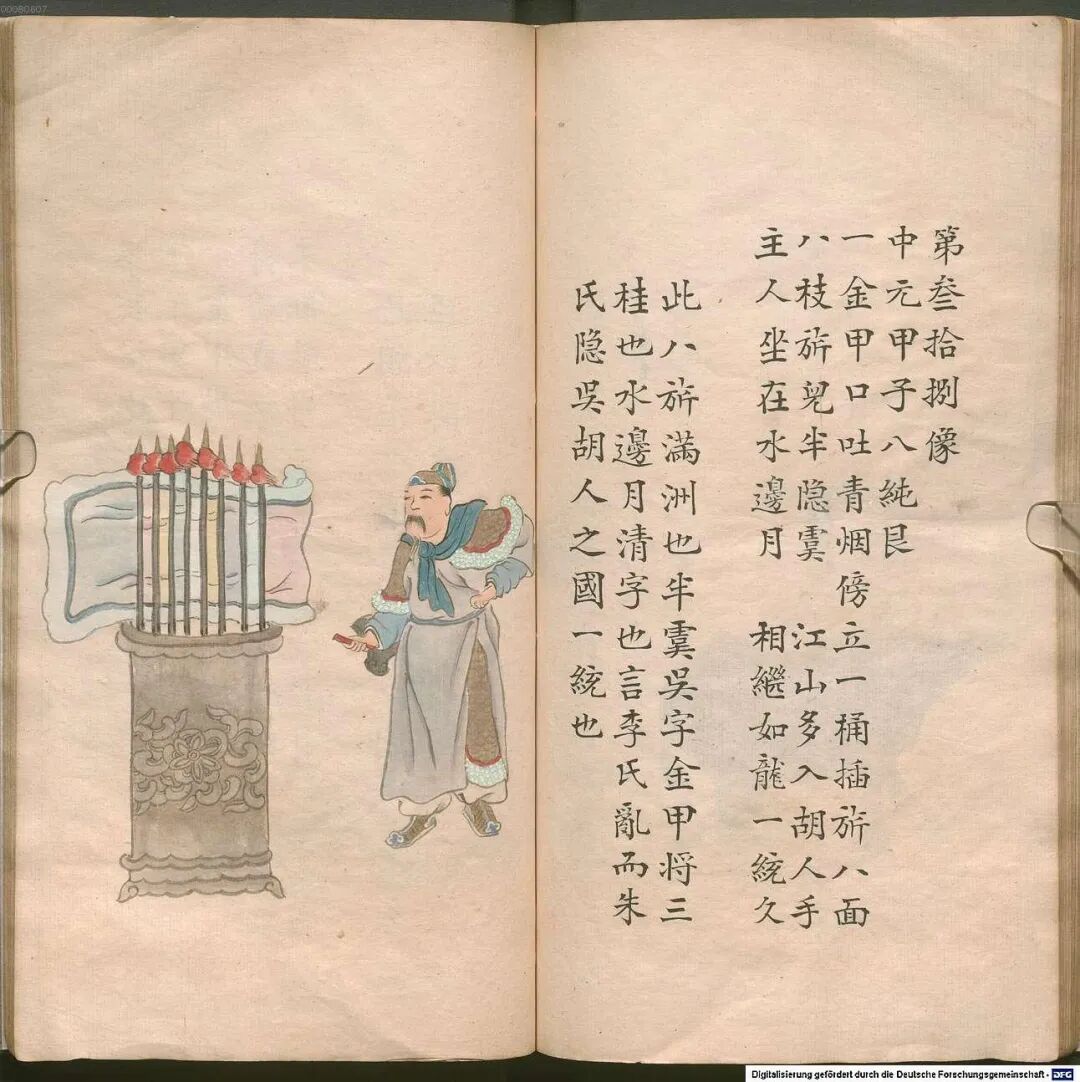 00980607
第叁拾捌像
中元甲子八純艮
一金甲口吐青烟傍立一桶插旂八面
八枝旂兒半隠雲 江山多入胡人手
主人坐在水邊月 相繼如龍一統久
此八旂滿洲也半雲吳字金甲将三
桂也水邊月清字也言李氏亂而朱
氏隠吳胡人之國一統也
Digitalisierung gefördert durch die Deutsche Forschungsgemeinschaft - DFG